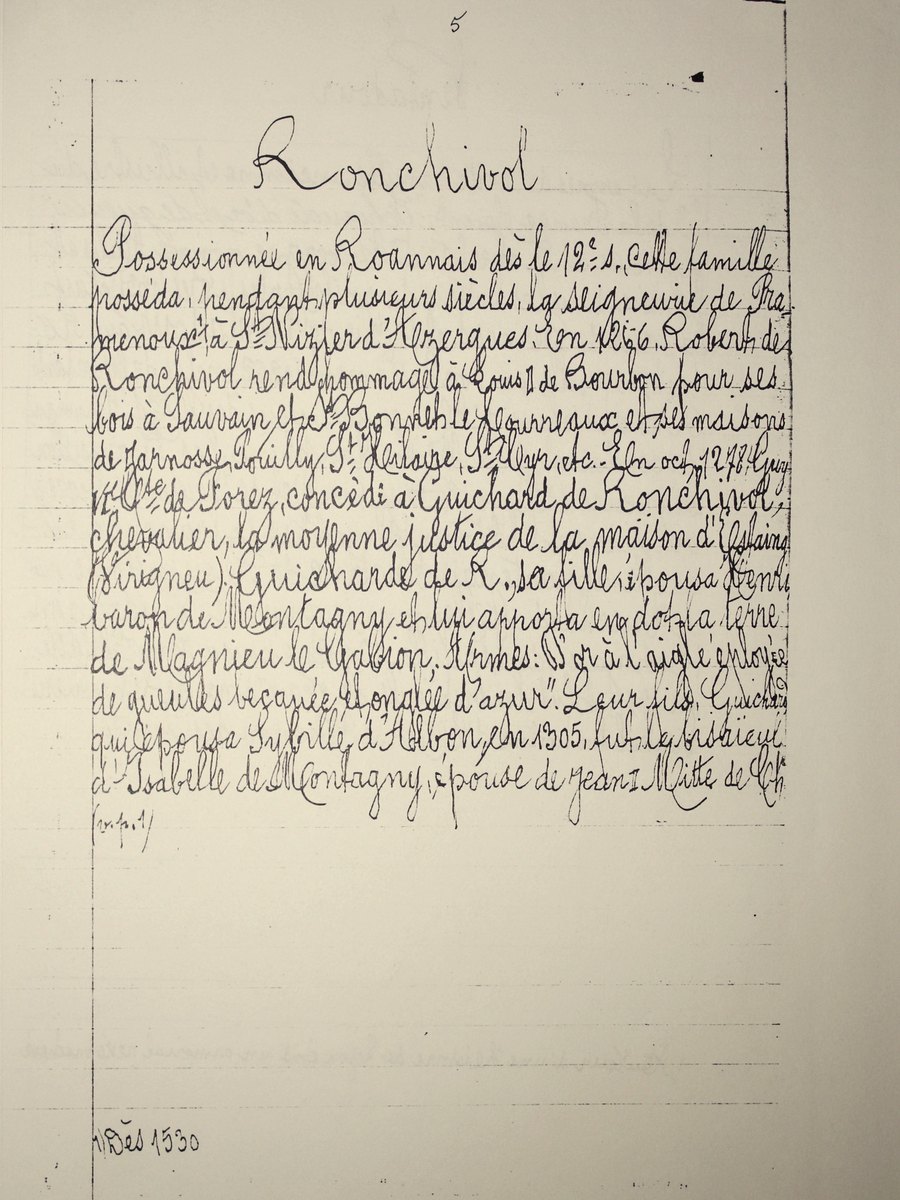 5
Ronchivol
Possessionnée en Roannais dès le 12e s., cette famille
posséda, pendant plusieurs siècles, la seigneurie de Pra-
menoux(1) à St Nizier d'Azergues. En 1266, Robert de
Ronchivol rend hommage à Louis II de Bourbon pour ses
bois à Sauvain et St Bonnet le Courreaux et ses maisons
de Jarnosse, Pouilly, St Hilaire, St Cyr, etc. - En oct. 1278, Guy
Cte de Forez, concède à Guichard de Ronchivol,
chevalier, la moyenne justice de la maison d'Estaing
(Virigneu). Guicharde de R., sa fille, épousa Henri
baron de Montagny et lui apporta en dot la terre
de Magnieu le Gabion. Armes: "D'or à l'aigle éployée
de gueules becquée et onglée d'azur". Leur fils, Guichard
qui épousa Sybille d'Albon, en 1305, fut le bisaïeul
d'Isabelle de Montagny, épouse de Jean I Mitte de Ch.
(v. p. 1)
1) Dès 1530